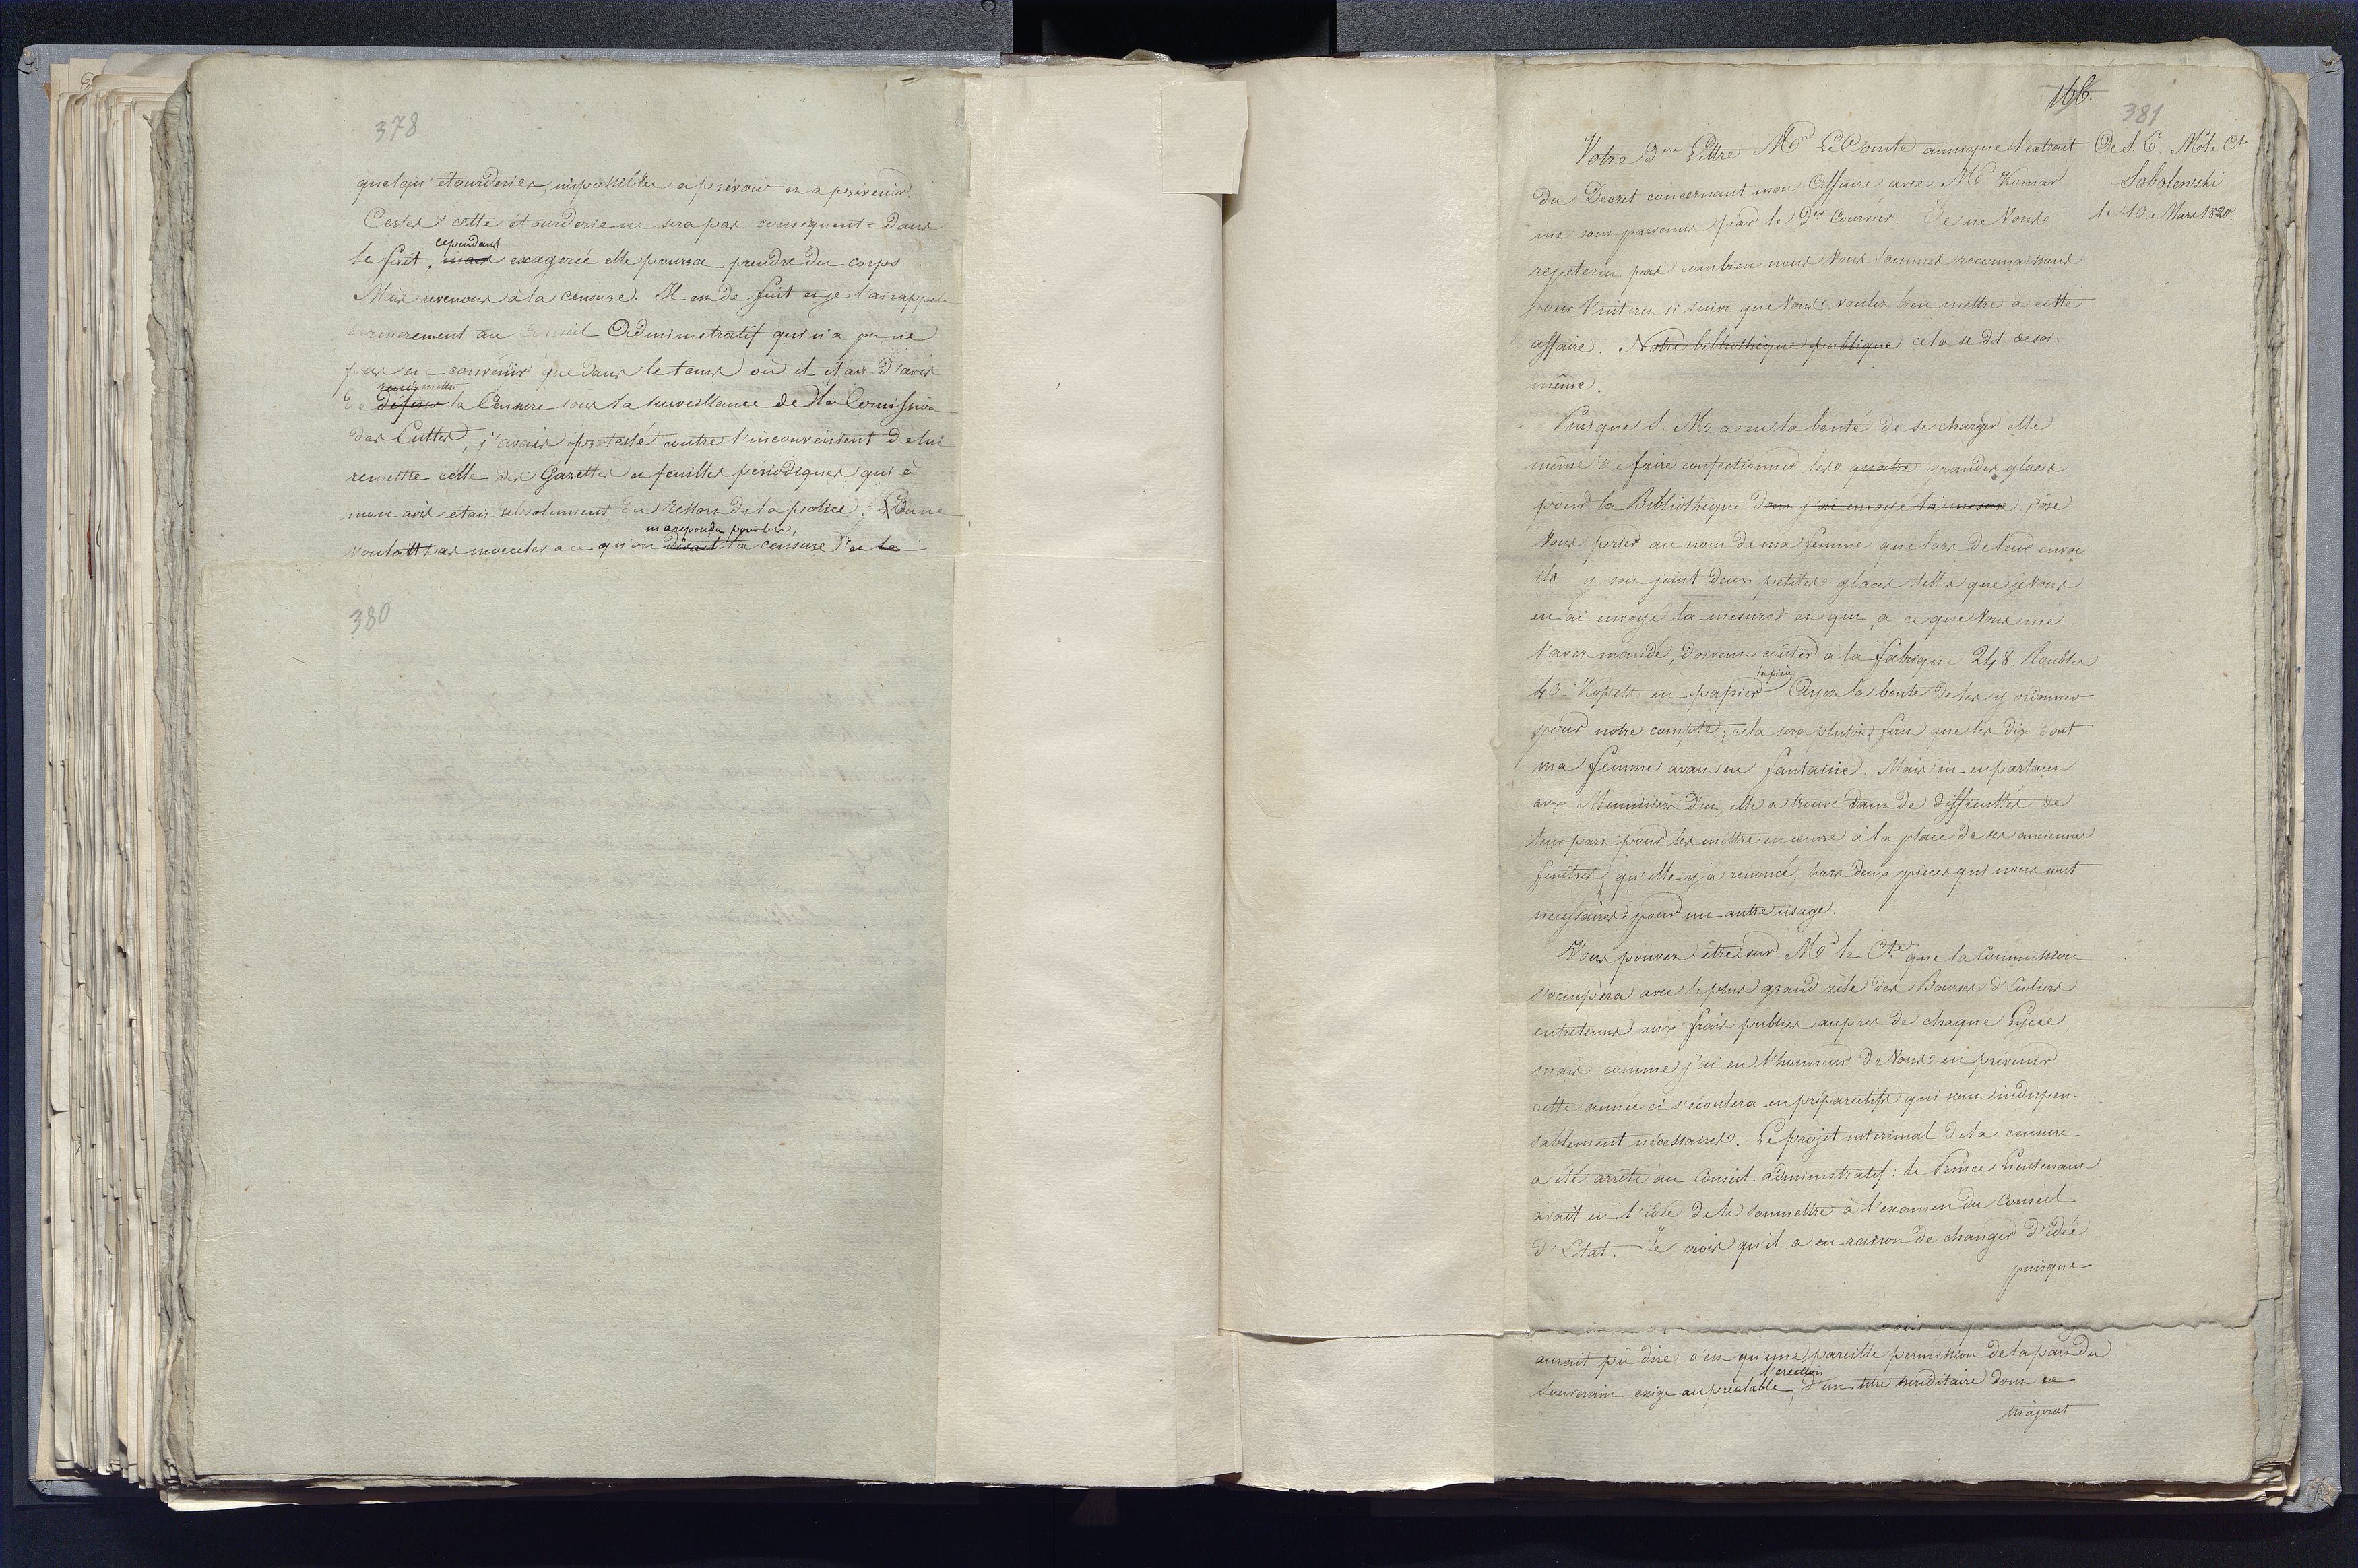 378
quelqu'étourderies, impossibles a prévoir et a prévenir.
Certes cette étourderie ne sera pas conséquente dans
le fait, cependant mais exagerée elle pourra prendre du corps
Mais revenons à la censure. Il est de fait et je l'ai rappelé
dernierement au Conseil Administratif qui n'a pu ne
pas en convenir que dans le tems où il était d'avis
de remettre la Censure sous la surveillance de la Comission
des Cultes, j'avais protesté contre l'inconvénient de lui
remettre celle des Gazettes et feuilles périodiques qui à
mon avis etait absolument du ressort de la police. On ne
voulait pas morceler a ce qu'on disait m'a repondu pour lors, la censure et le
380
166.
381
De S. E. Mr le Cte
Sobolewski
le 10 Mars 1820.
Votre dere Lettre Mr Le Comte ainsi que l'extrait
du Decret concernant mon Affaire avec Mr Komar
me sont parvenus par le der Courrier. Je ne Vous
repeterai pas combien nous Vous sommes reconnaissans
pour l'interet si suivi que Vous voulez bien mettre à cette
affaire. Notre bibliothèque publique cela se dit de soi-
même.
Puisque S. M. a eu la bonté de se charger elle
même de faire confectionner les quatre grandes glaces
pour la Bibliothèque dont j'ai envoyé la mesure j'ose
Vous prier au nom de ma femme que lors de leur envoi
il y soit joint deux petites glaces telles que je Vous
en ai envoyé la mesure et qui, a ce que Vous me
l'avez mandé, doivent coûter à la fabrique 248. Roubles
40 Kopeks en papier la pièce. Ayez la bonté de les y ordonner
pour notre compte, cela sera plutôt fait que les dix dont
ma femme avait eu fantaisie. Mais en en parlant
aux Menuisiers d'ici, elle a trouvé tant de difficultés de
leur part pour les mettre en œuvre à la place de ses anciennes
fenêtres, qu'elle y a renoncé, hors deux pièces qui nous sont
necessaires pour un autre usage.
Vous pouvez être sur Mr le Cte que la Commission
s'occupera avec le plus grand zèle des Bourses d'Ecoliers
entretenus aux frais publics aupres de chaque Lycée
mais comme j'ai eu l'honneur de Vous en prévenir
cette année ci s'écoulera en préparatifs qui sont indispen-
sablement nécessaires. Le projet interimal de la censure
a été arrêté au Conseil administratif: le Prince Lieutenant
avait eu l'idée de le soumettre à l'examen du Conseil
d'Etat. Je crois qu'il a eu raison de changer d'idée
puisque
aurait pû dire c'est qu'une pareille permission de la part du
Souverain exige au préalable, l'erection d'un titre héréditaire dont ce
majorat